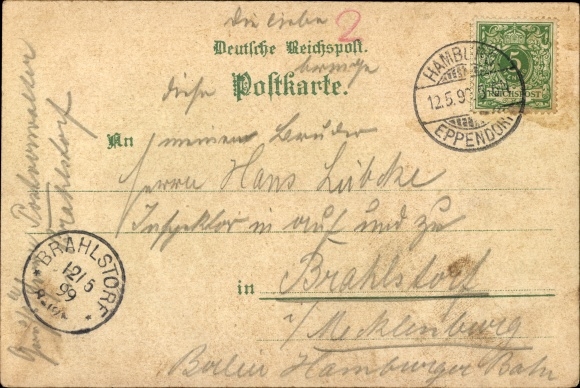 die liebe
2
Deutsche Reichspost.
diese bringe
Postkarte.
HAMBURG
12.5.9
EPPENDORF
5
REICHSPOST
An meinem Bruder
Herrn Hans Lübcke
Inspektor in auf und zu
in Brahlstorf
i/ Mecklenburg
Berlin Hamburger Bahn
Brahlstorf
BRAHLSTORF
12/5
99